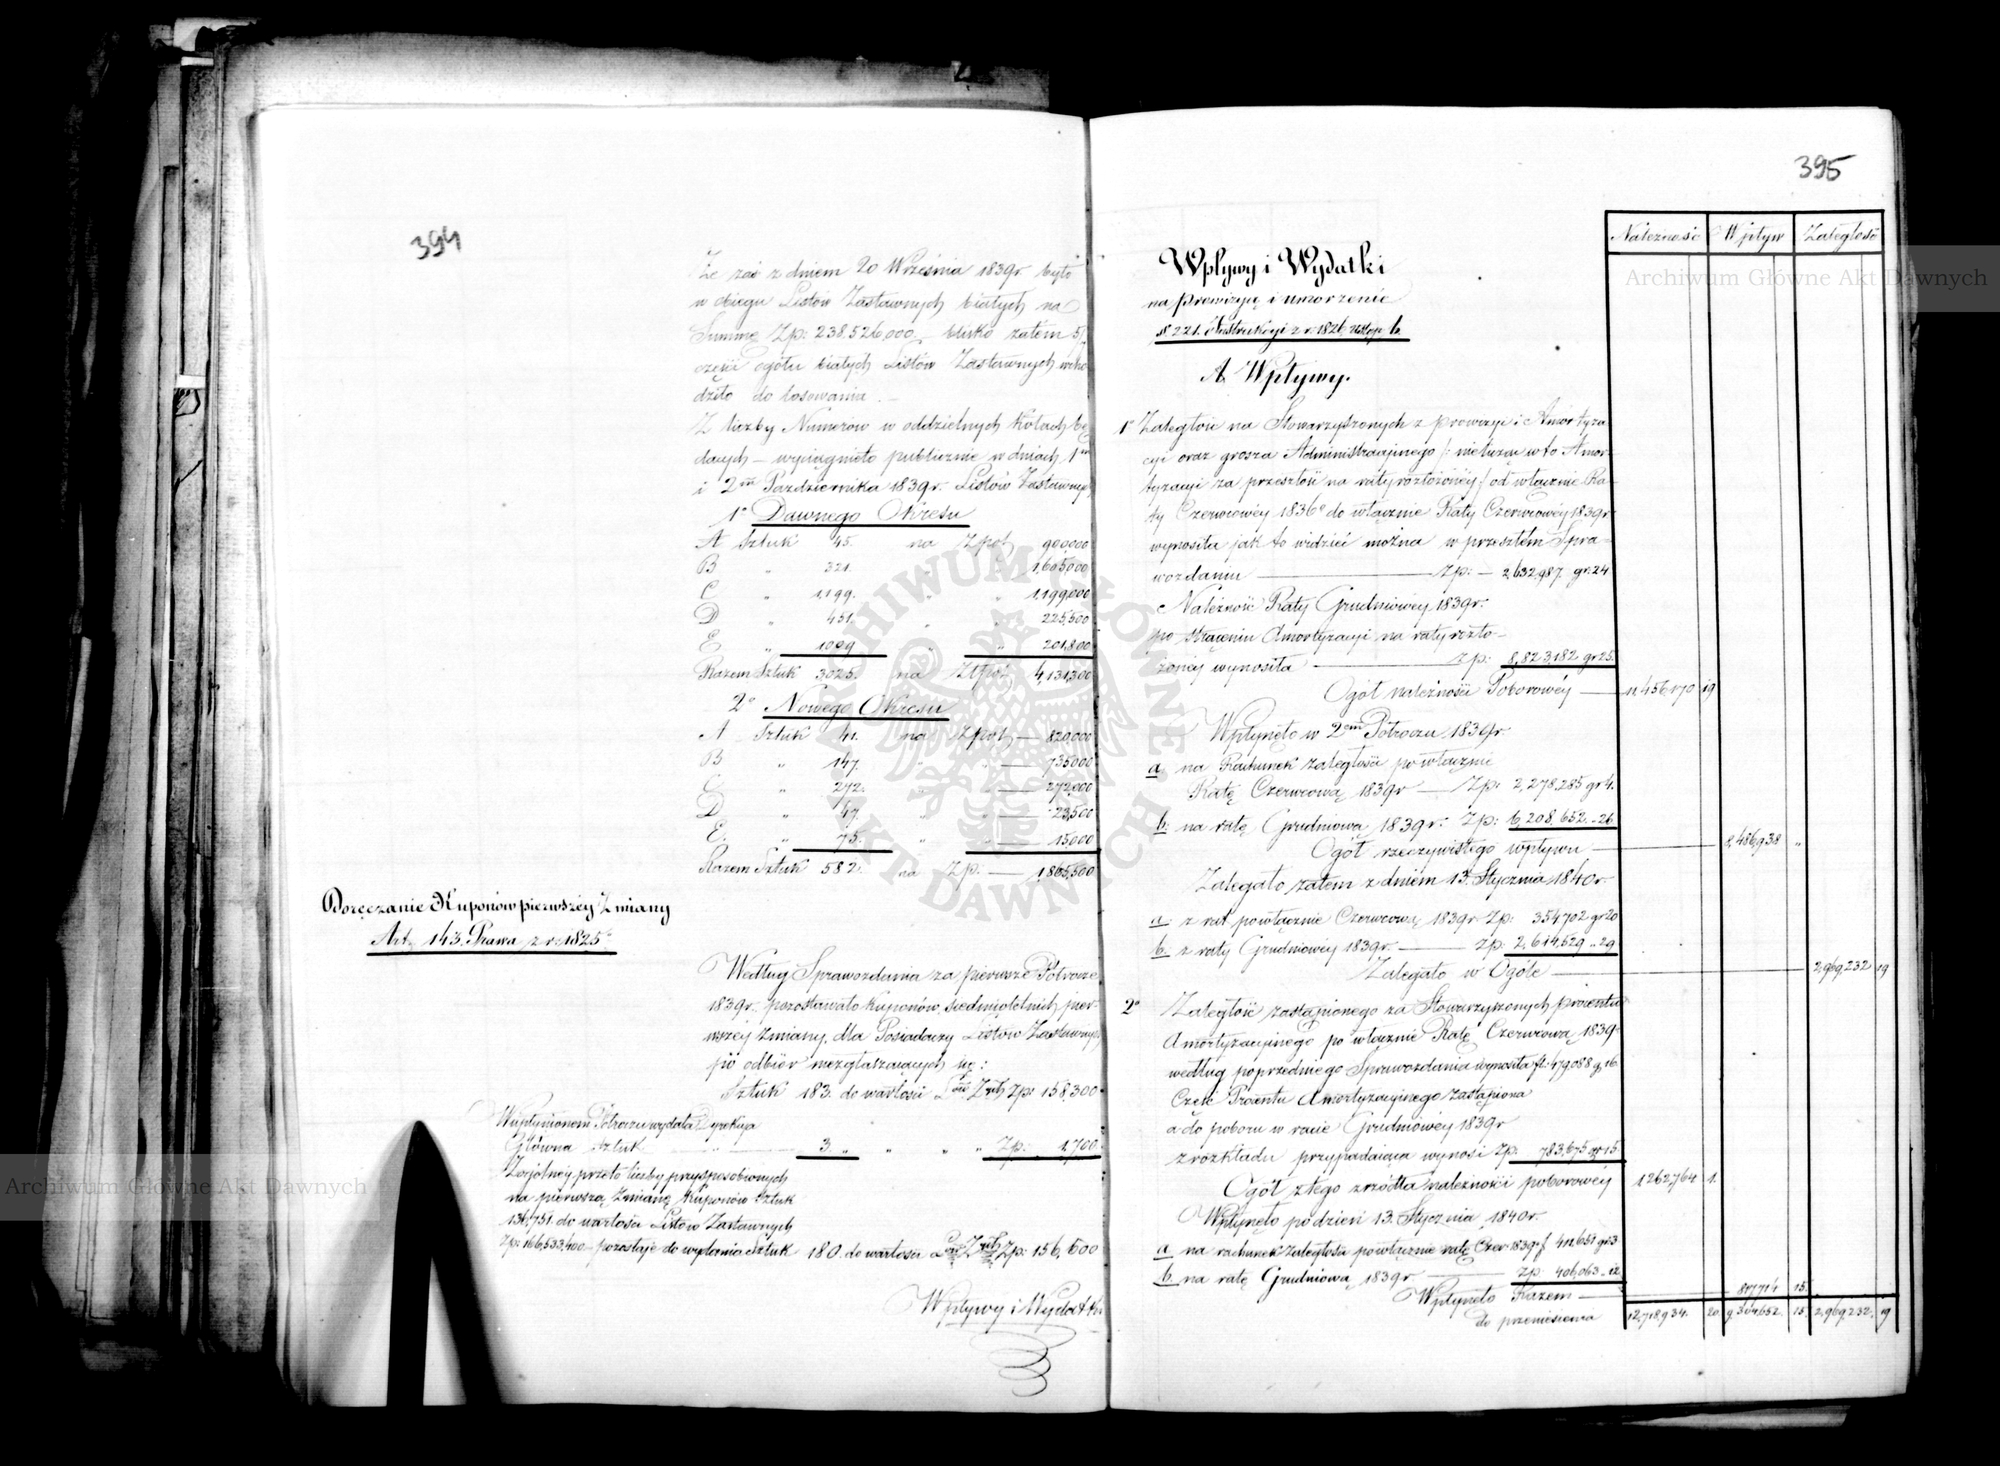 394
Że zaś z dniem 20 Września 1839r. było
w obiegu Listów Zastawnych białych na
Summę Zp: 238,526,000, blisko zatem 5/
części ogółu białych Listów Zastawnych wcho
dziło do losowania. –
Z liczby Numerów w oddzielnych kołach bę
dących – wyciągnięto publicznie w dniach 1m
i 2m Października 1839r. Listów Zastawnych
1° Dawnego Okresu
A Sztuk 45. na Zpol. 900,000
B „ 321. „ „ 1,605,000
C „ 1,199. „ „ 1,199,000
D „ 451. „ „ 225,500
E „ 1009 „ „ 201,800
Razem Sztuk 3025. na Złpol. 4,131,300
2° Nowego Okresu
A Sztuk 41. na Zpol. — 820,000
B „ 147. „ „ — 735,000
C „ 272. „ „ — 272,000
D „ 47. „ „ — 23,500
E. „ 75. „ „ — 15,000
Razem Sztuk 582. na Zp. — 1,865,500
Doręczanie Kuponów pierwszéy Zmiany
Art. 143. Prawa z r. 1825
Według Sprawozdania za pierwsze Półrocze
1839r. pozostawało kuponów siedmioletnich pier-
wszéy zmiany, dla Posiadaczy Listów Zastawnych
po odbiór niezgłaszaiących się:
Sztuk 183. do wartości Lów Znych Zp: 158,300
W upłynionem Półroczu wydała Dyrekcja
Główna Sztuk — 3. „ „ „ „ Zp: 1,700
Z ogólnéy przeto liczby przysposobionych
na pierwszą Zmianę Kuponów Sztuk
136,751. do wartości Listów Zastawnych
Zp: 166,533,400 – pozostaje do wydania Sztuk 180. do wartości Lów Znych Zp: 156,600
Wpływy i Wydatki
395
Należność Wpływ Zaległość
Wpływy i Wydatki
na prowizyą i umorzenie
§ 221. Instrukcyi z r. 1826 ustęp b
A. Wpływy.
1° Zaległość na Stowarzyszonych z prowizyi i Amortyza
cyi oraz grosza Administracyjnego /: nielicząc w to Amor-
tyzacyi za przeszłość na raty rozłożonéy :/ od włącznie Ra-
ty Czerwcowéy 1836° do włącznie Raty Czerwcowéy 1839r.
wynosiła jak to widzieć można w przeszłem Spra-
wozdaniu — Zp: — 2,632,987 gr. 24
Należność Raty Grudniowéy 1839r.
po strąceniu Amortyzacyi na raty rozło-
żonéy wynosiła — Zp: 8,823,182 gr 25.
Ogół należności Poborowéy — 11,456,170 19
Wpłynęło w 2em Półroczu 1839r.
a na Rachunek zaległości po włącznie
Ratę Czerwcową 1839r — Zp: 2,278,285 gr 4.
b: na ratę Grudniową 1839r. Zp: 6,208,652. „ 26
Ogół rzeczywistego wpływu — 8,486,938 „
Zalegało zatem z dniem 13. Stycznia 1840r.
a: z rat po włącznie Czerwcową 1839r Zp: 354,702 gr 20
b: z raty Grudniowéy 1839r. — Zp: 2,614,529 „ 29
Zalegało w Ogóle — 2,969,232 19
2° Zaległość zastąpionego za Stowarzyszonych procentu
Amortyzacyjnego po włącznie Ratę Czerwcową 1839
według poprzedniego Sprawozdania wynosiła fl: 479,088 g. 16
Część Procentu Amortyzacyjnego zastąpiona
a do poboru w racie Grudniowéy 1839r
z rozkładu przypadaiąca wynosi Zp: 783,675 gr 15
Ogół z tego źródła należności poborowéy 1,262,764 1.
Wpłynęło po dzień 13. Stycznia 1840r.
a na rachunek zaległości po włącznie ratę Czer: 1839r f. 411,651 gr 3
b. na ratę Grudniową 1839r — Zp: 406,063 „ 12
Wpłynęło Razem — 817,714 15.
do przeniesienia 12,718,934. 20. 9,304,652. 15 2,969,232. 19
Archiwum Główne Akt Dawnych
Archiwum Główne Akt Dawnych
ARCHIWUM GŁÓWNE AKT DAWNYCH